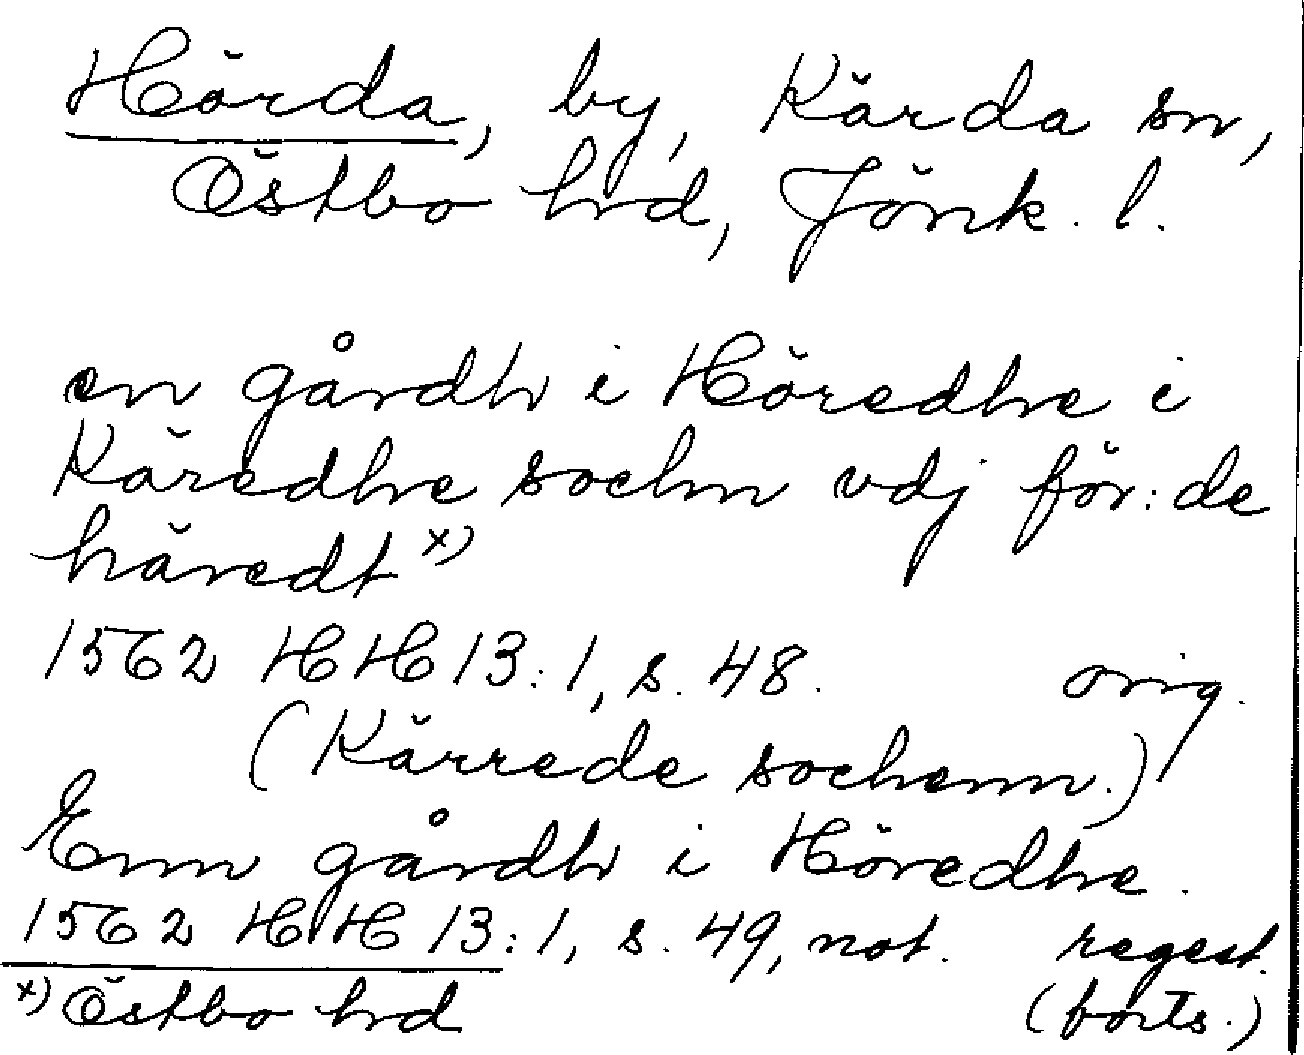 Hörda, by, Kärda sn,
Östbo hd, Jönk. l.
en gårdh i Höredhe i
Käredhe sochn vdj för:de
häredt x)
1562 HH 13:1, s. 48. orig.
(Kärrede sochenn.)
Enn gårdh i Höredhe.
1562 HH 13:1, s. 49, not. regest.
x) Östbo hd (forts.)